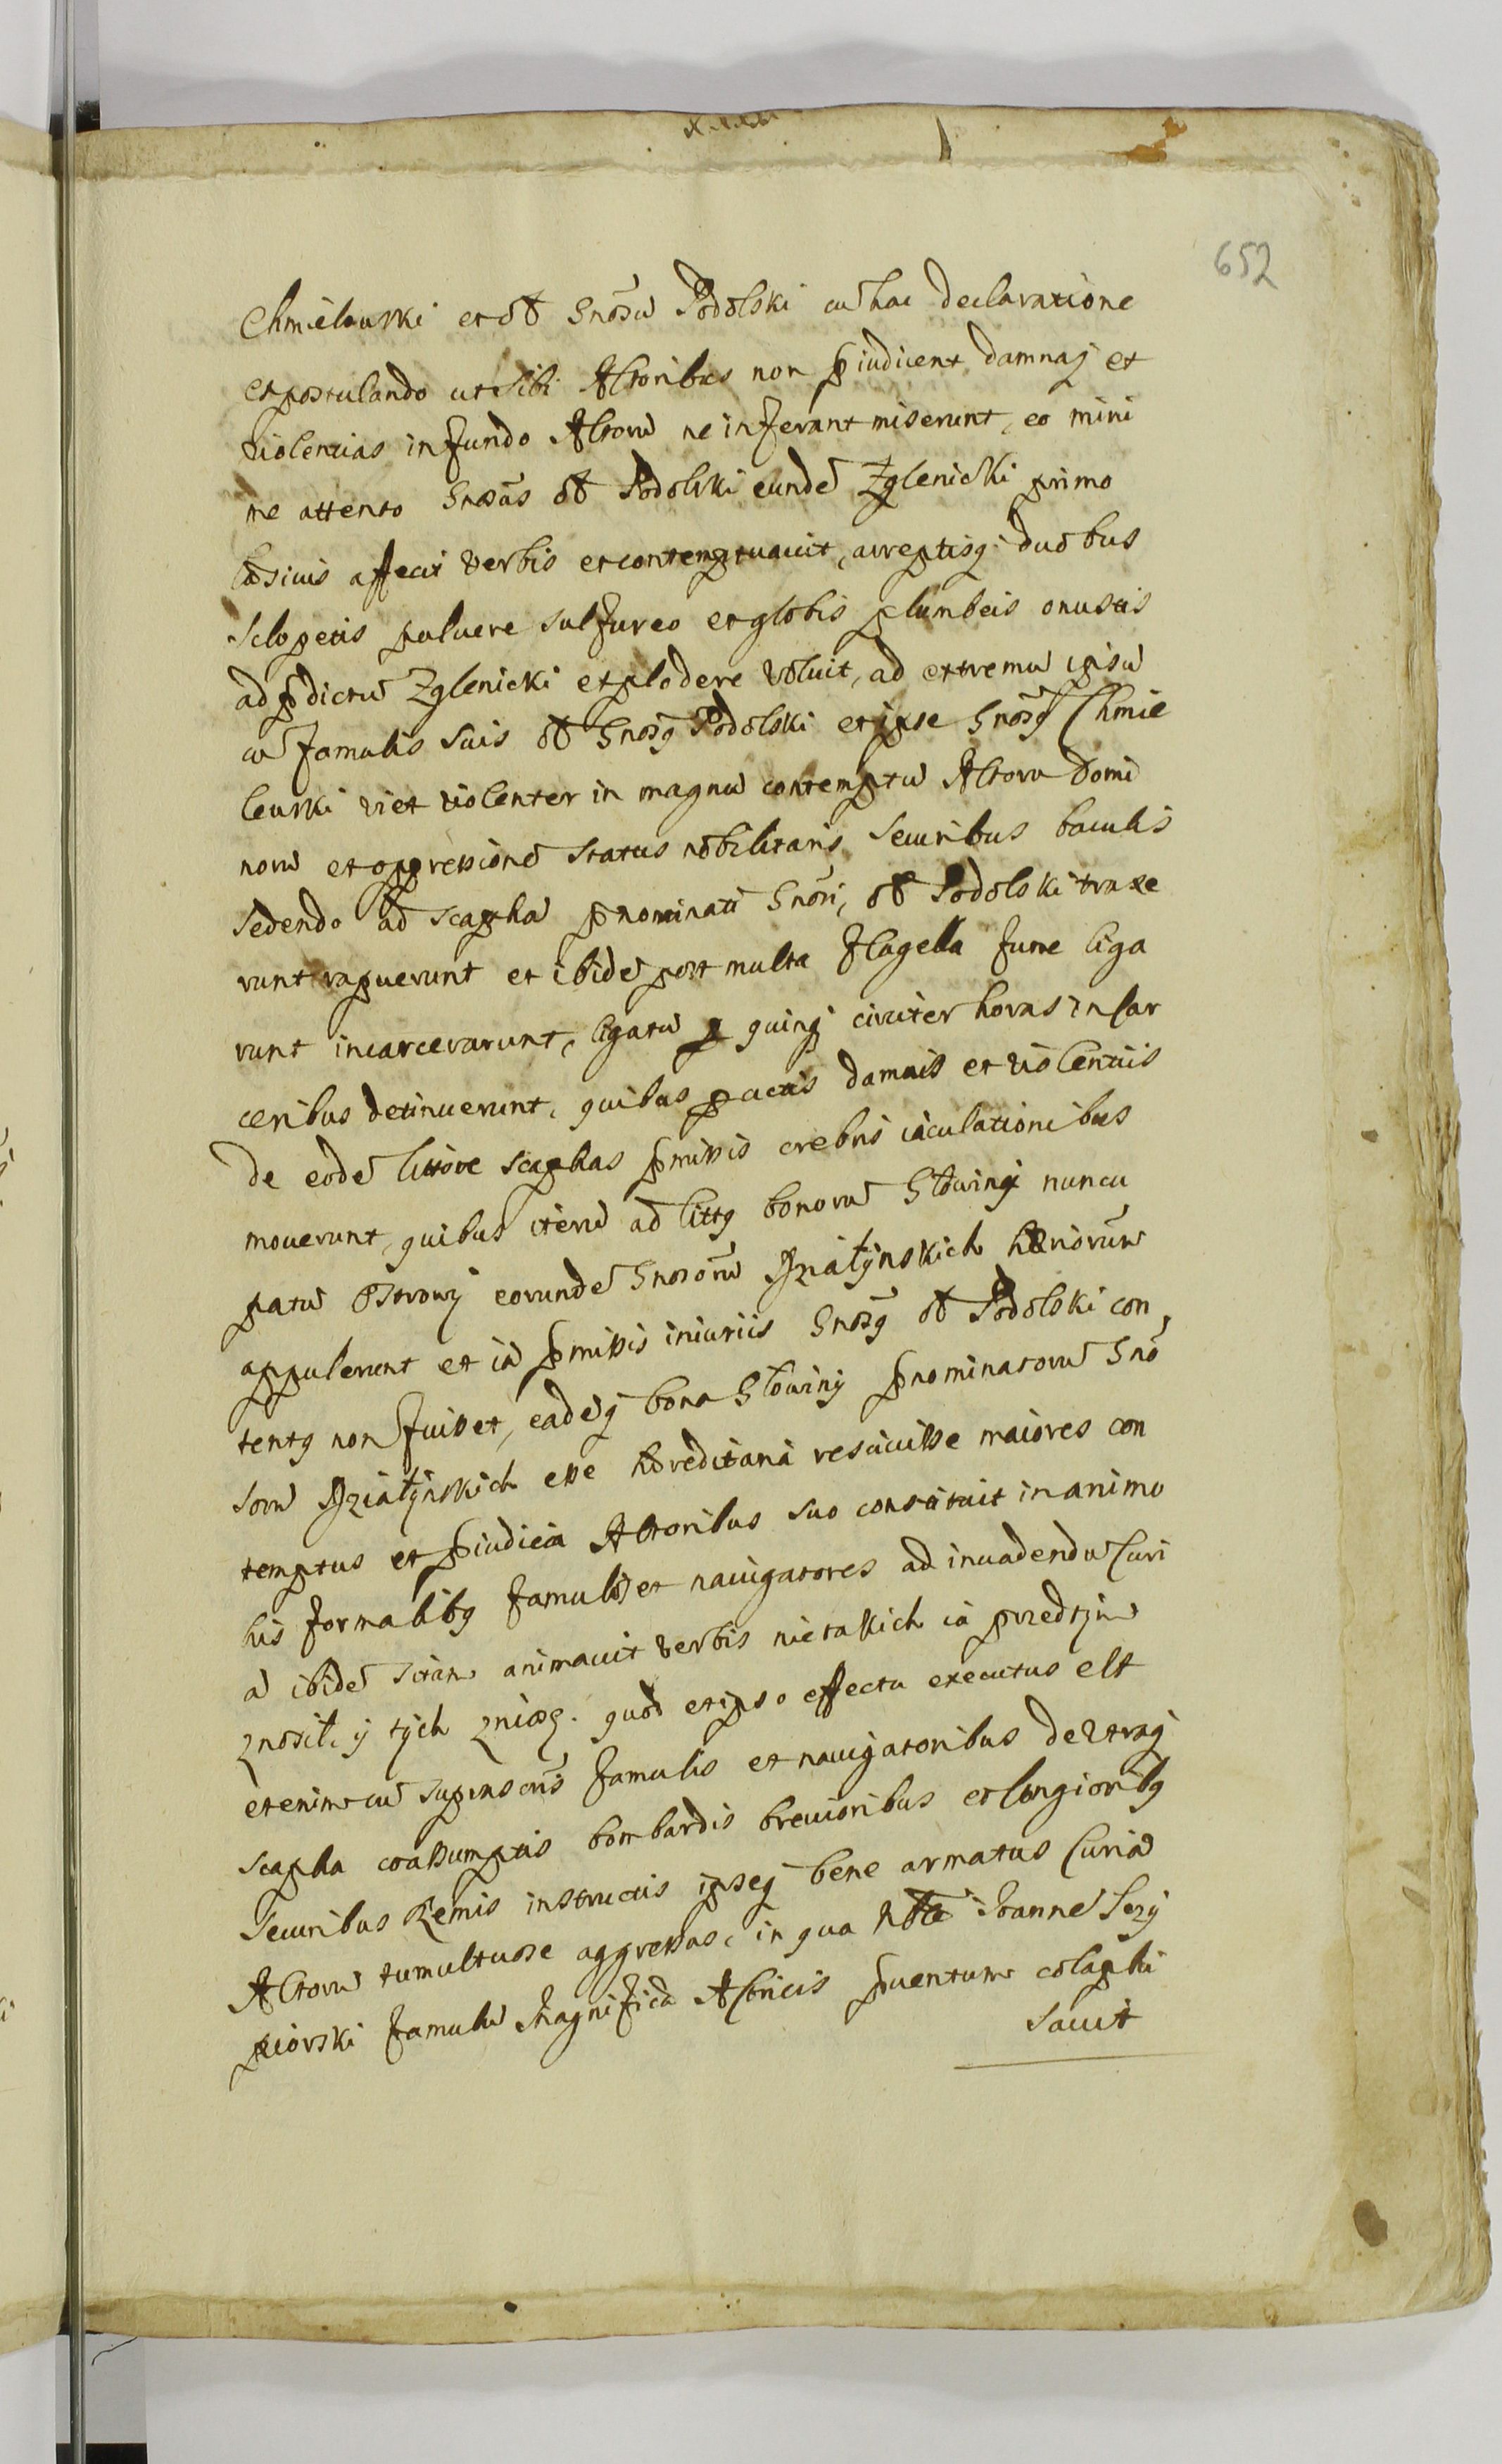 652
Chmielewski et ad Gnosū Podolski cū hac declaratione
expostulando ut sibi Actoribus non p̱iudicent damnaq̢ et
violentias in fundo Actorū ne inferant miserunt, eo mini
me attento Gnosus ad Podolski eundē Zglenicki primo
læsiuis affecit verbis et contemptuauit, arreptisq̢ duobus
Sclopetis puluere sulfureo et globis plumbeis onustis
ad p̱dictū Zglenicki explodere voluit, ad extremū ipsū
cū famulis suis ad Gnosꝯ Podolski et ipse Gnosꝯ Chmie
lewski vi et violenter in magnū contemptū Actorū Domi
norū et oppressionē status nobilitaris securibus baculis
sedendo ad scaphā p̱nominati Gnosi, ad Podolski traxe
runt rapuerunt et ibidē post multa flagella fune liga
runt incarcerarunt, ligatū ꝑ quinq̢ circiter horas in Car
ceribus detinuerunt, quibus ꝑactis damnis et violentiis
de eodē littore scaphas p̱missis crebris iaculationibus
mouerunt, quibus iterū ad littꝯ bonorū Głowiny nuncu
patū Ostrowy eorundē Gnosorū Działynskich hæriorum
appulerunt et iā p̱missis iniuriis Gnosꝯ ad Podolski con,
tentꝯ non fuisset, eadēq̢ bona Głowiny p̱nominatorū Gno
sorū Działynskich esse hæreditaria resciuisse maiores con
temptus et p̱iudicia Actoribus suo constituit in animo
his formalibꝯ famulos et nauigatores ad inuadendū Curi
ā ibidē sitam animauit verbis nietakich ia przedtym
znosił, y tych zniosę. quod et ipso effectu executus est
etenim cū suprascris famulis et nauigatoribus de vtraq̢
scapha coassumptis bombardis breuioribus et longioribꝯ
securibus Remis instructis ipseq̢ bene armatus Curiā
Actorū tumultuose aggressus, in qua Nblē Joannē Szy
piorski famulū Magnificæ Actricis p̱uentum colaphi
sauit